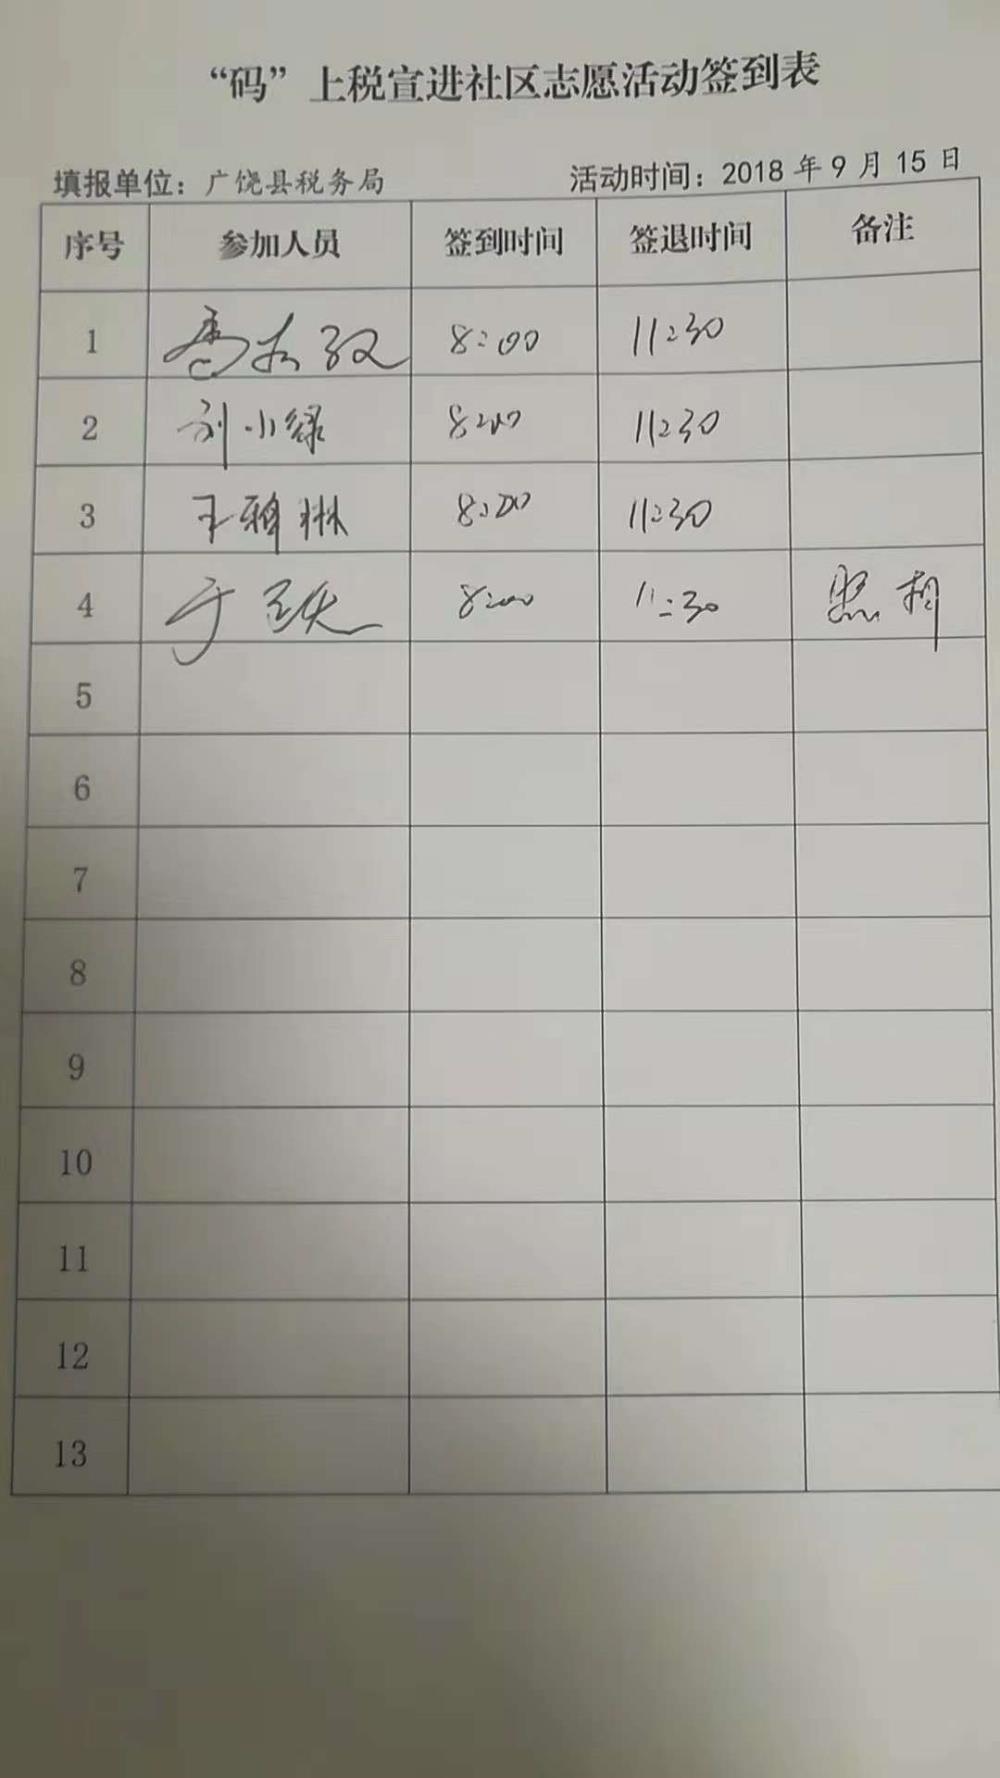 “码”上税宣进社区志愿活动签到表
填报单位：广饶县税务局 活动时间：2018 年 9 月 15 日
序号 参加人员 签到时间 签退时间 备注
1 8:00 11:30
2 刘小绿 8:00 11:30
3 王雅琳 8:00 11:30
4 于 8:00 11:30 照相
5
6
7
8
9
10
11
12
13